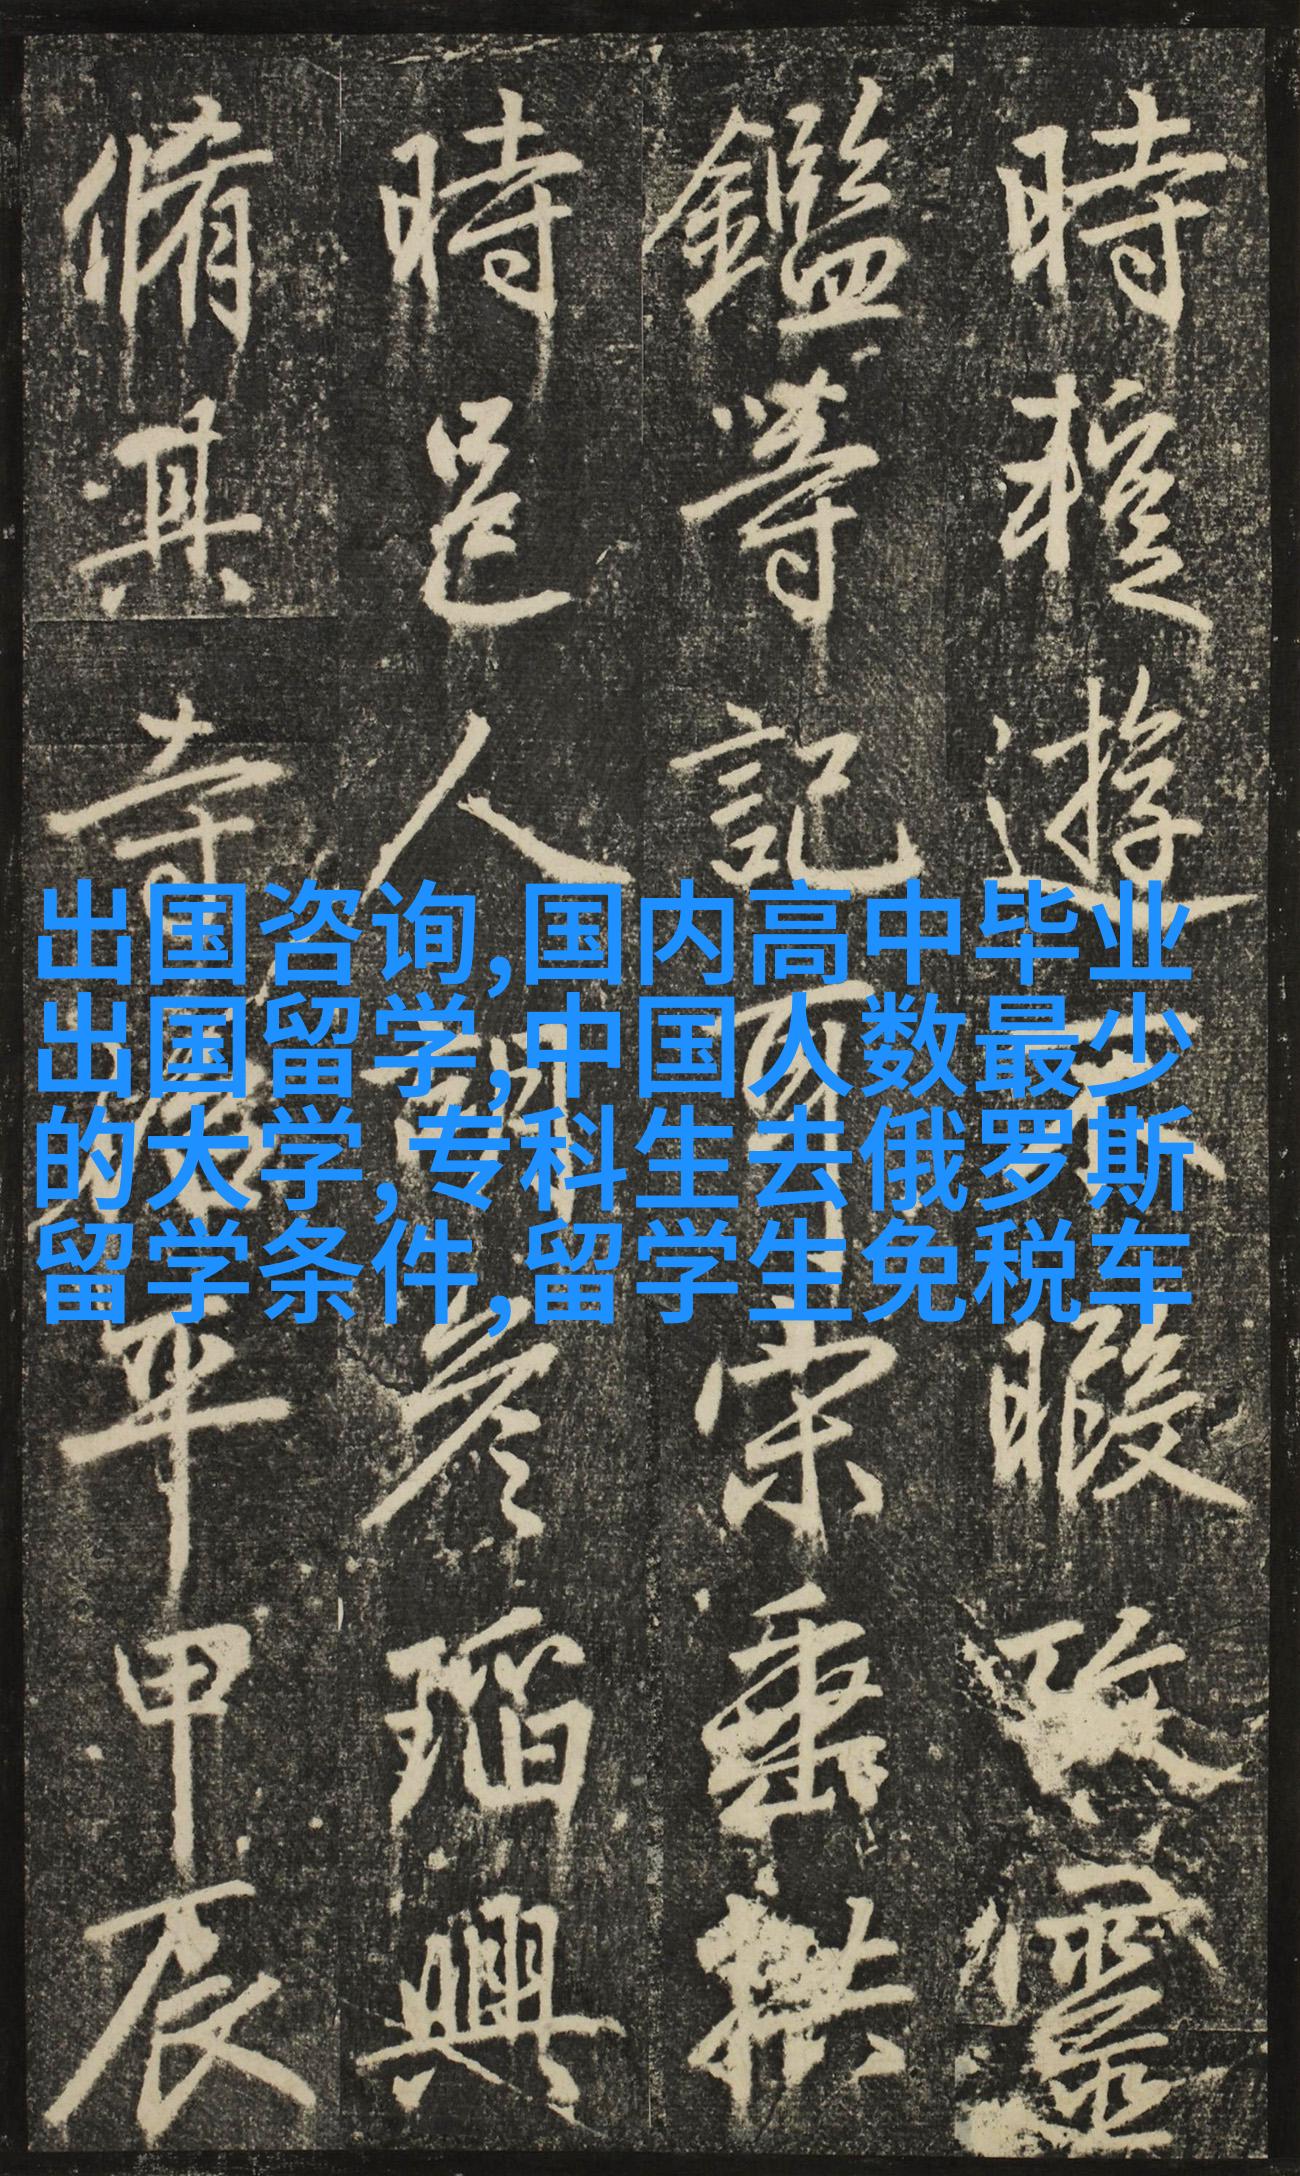 時遊暇
鑑等記宗垂拱
時邑人彦瑫興
脩其寺年甲辰
出国咨询,国内高中毕业
出国留学,中国人数最少
的大学,专科生去俄罗斯
留学条件,留学生免税车